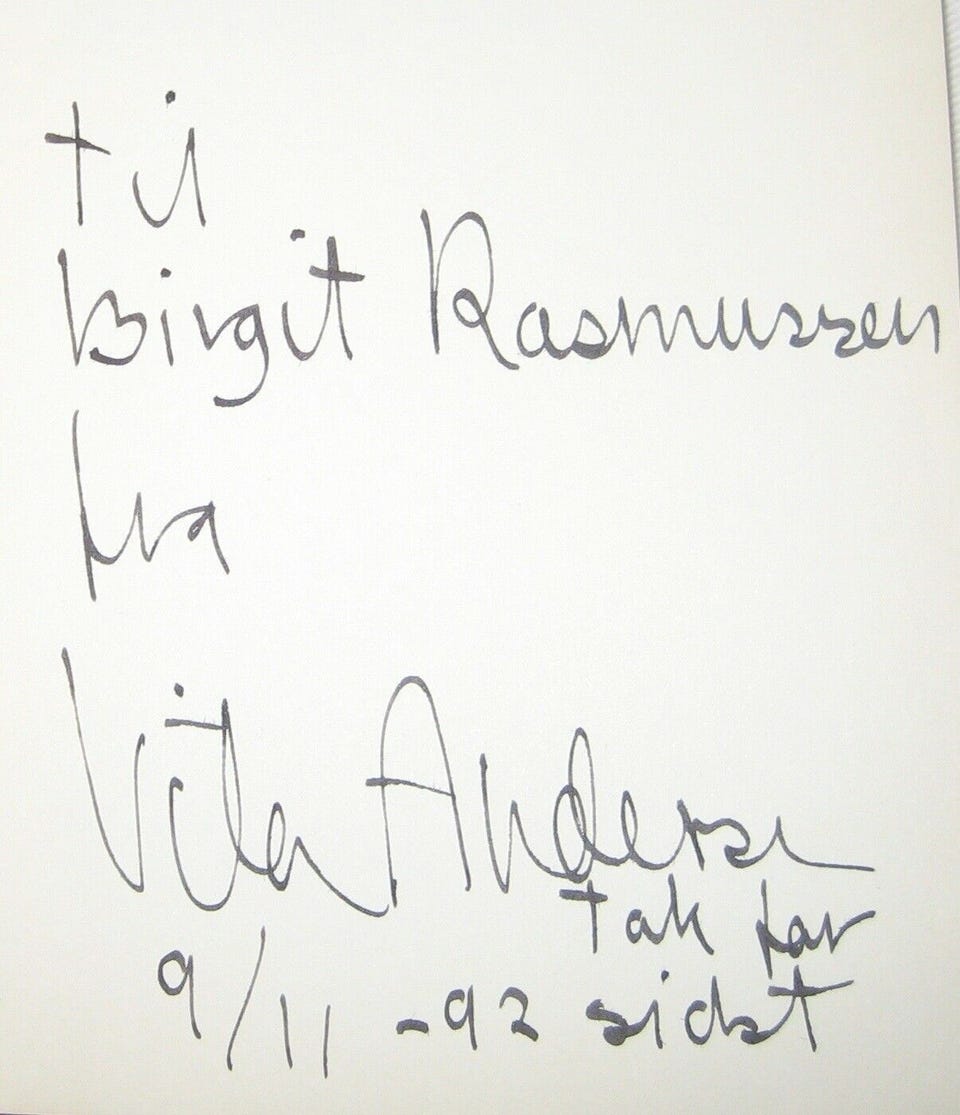 til
Birgit Rasmussen
fra
Vita Andersen
tak for
9/11 -92 sidst